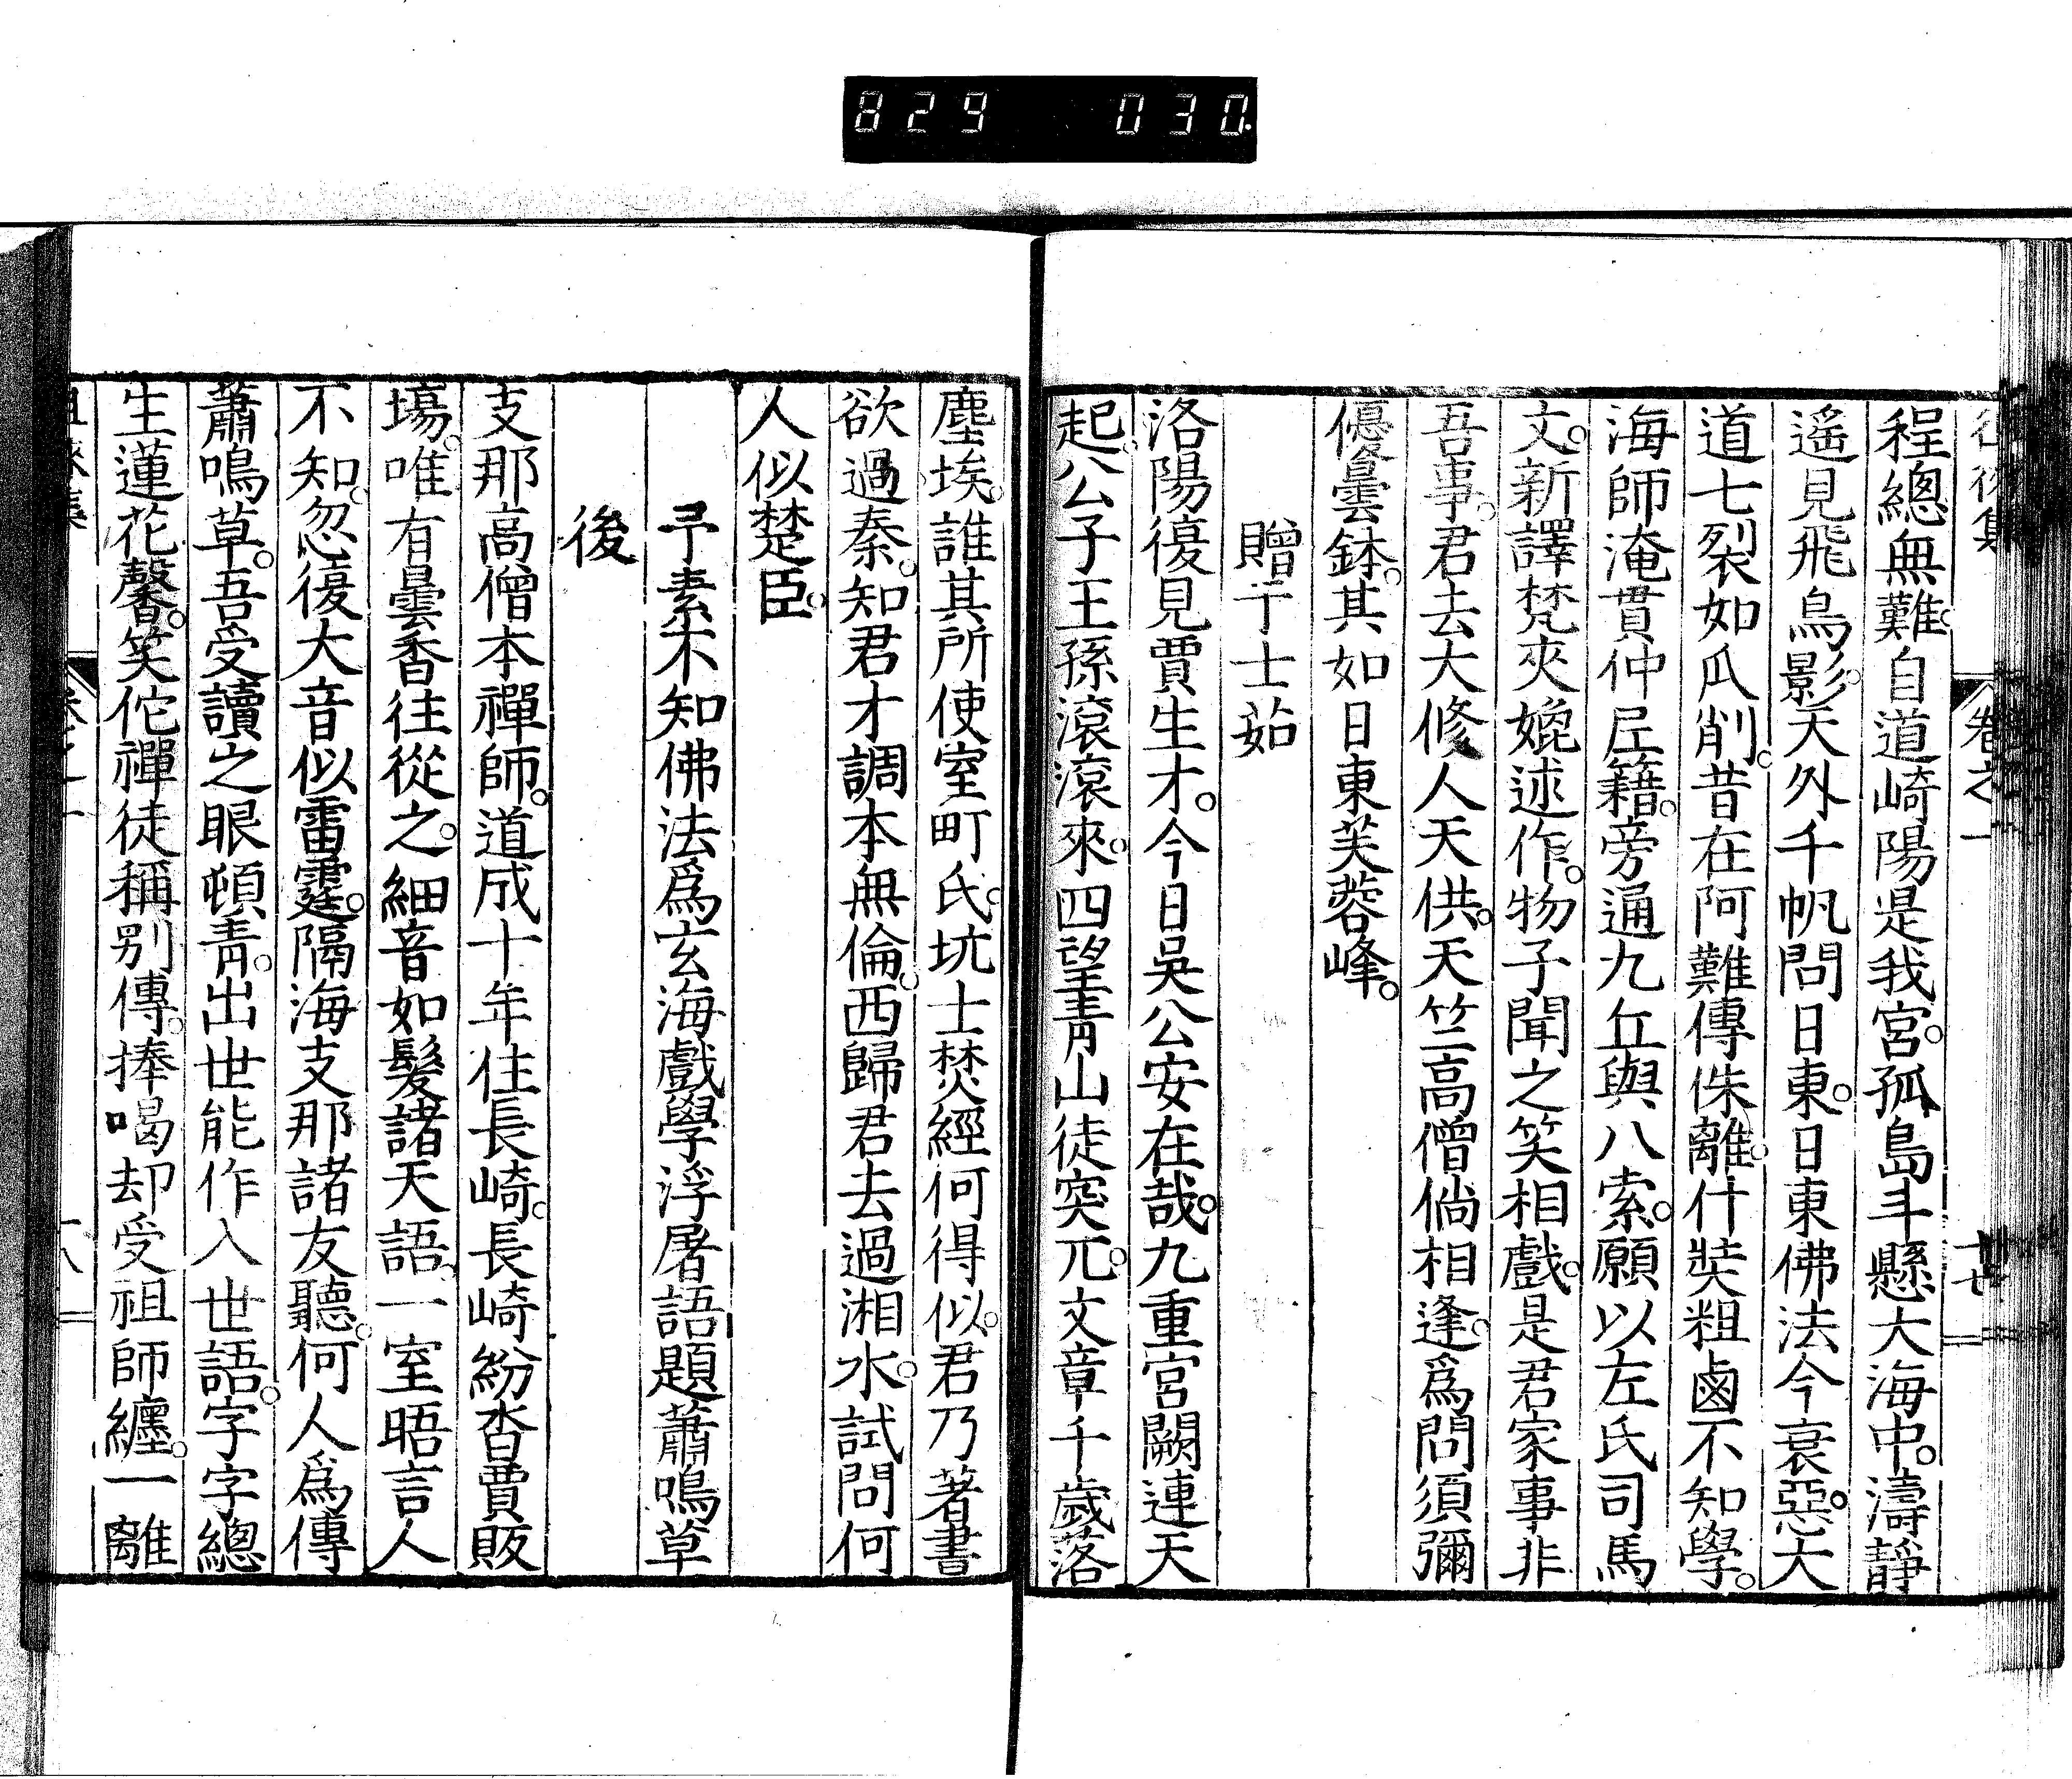 829 030.
徂徠集 卷之一 十七
程總無難。自道崎陽是我宮。孤島斗懸大海中。濤靜
遙見飛鳥影。天外千帆問日東。日東佛法今衰惡。大
道七裂如瓜削。昔在阿難傳侏離。什奘粗鹵不知學。
海師淹貫仲尼籍。旁通九丘與八索。願以左氏司馬
文。新譯梵夾媲述作。物子聞之笑相戲。是君家事非
吾事。君去大修人天供。天竺高僧倘相逢。爲問須彌
優曇鉢。其如日東芙蓉峰。
贈于士茹
洛陽復見賈生才。今日吳公安在哉。九重宮闕連天
起。公子王孫滾滾來。四望靑山徒突兀。文章千歲落
塵埃。誰其所使室町氏。坑士焚經何得似。君乃著書
欲過秦。知君才調本無倫。西歸君去過湘水。試問何
人似楚臣。
予素不知佛法爲玄海戲學浮屠語題蕭鳴草
後
支那高僧本禪師。道成十年住長崎。長崎紛沓賈販
場。唯有曇香往從之。細音如髮諸天語。一室晤言人
不知。忽復大音似雷霆。隔海支那諸友聽。何人爲傳
蕭鳴草。吾受讀之眼頓靑。出世能作入世語。字字總
生蓮花馨。笑佗禪徒稱別傳。捧喝却受祖師纏。一離
徂徠集 卷之一 十八